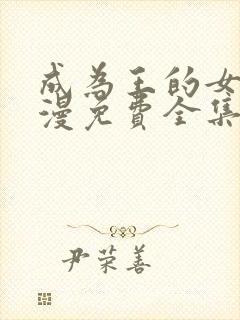 成为王的女
漫免费全集
尹荣善